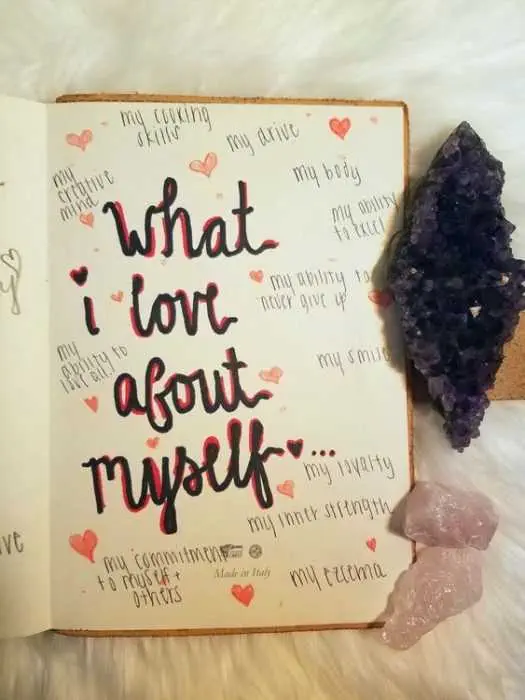 my cooking
skills
my drive
my
creative
mind
my body
my ability
to excel
what
i love
about
myself...
my ability to
never give up
my
ability to
love all
my smile
my loyalty
my inner strength
my commitment
to myself +
others
Made in Italy
my eczema